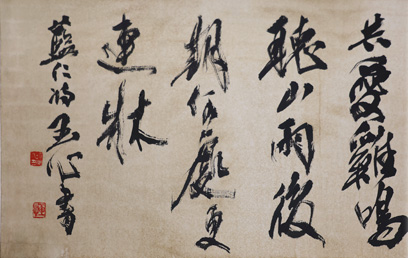 共愛雞鳴
聽山雨後
期何處更
連牀
藍仁 玉 書